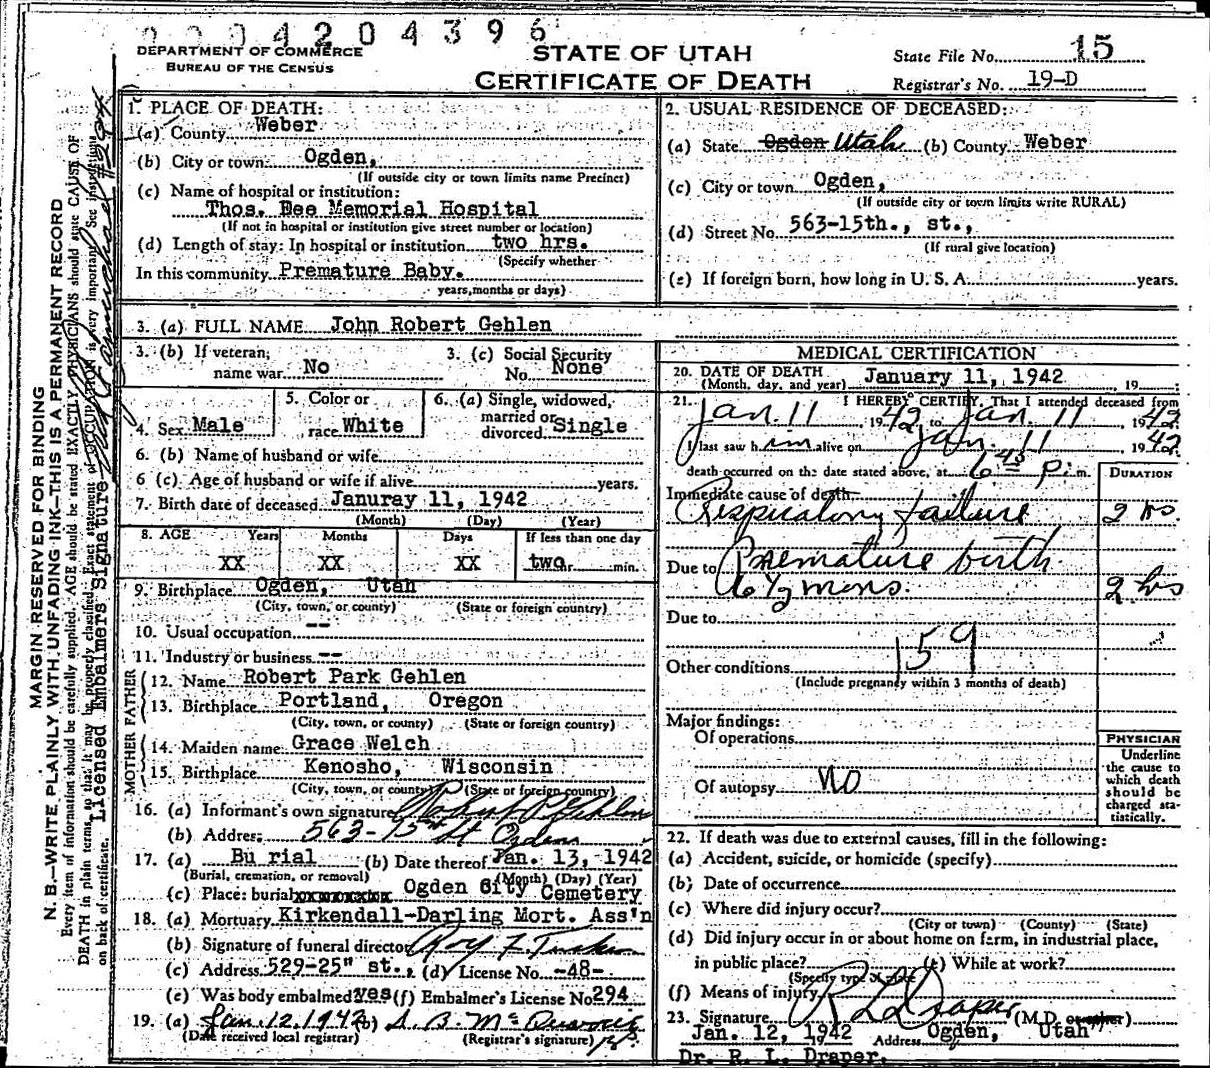 0004204396
DEPARTMENT OF COMMERCE
BUREAU OF THE CENSUS
STATE OF UTAH
CERTIFICATE OF DEATH
State File No. 15
Registrar's No. 19-D
MARGIN RESERVED FOR BINDING
N. B.—WRITE PLAINLY WITH UNFADING INK—THIS IS A PERMANENT RECORD
Every item of information should be carefully supplied. AGE should be stated EXACTLY. PHYSICIANS should state CAUSE OF
DEATH in plain terms, so that it may be properly classified. Exact statement of OCCUPATION is very important. See instructions
on back of certificate. Licensed Embalmers Signature
1. PLACE OF DEATH:
(a) County Weber
(b) City or town Ogden,
(If outside city or town limits name Precinct)
(c) Name of hospital or institution:
Thos. Dee Memorial Hospital
(If not in hospital or institution give street number or location)
(d) Length of stay: In hospital or institution two hrs.
(Specify whether
In this community Premature Baby.
years, months or days)
2. USUAL RESIDENCE OF DECEASED:
(a) State Ogden Utah (b) County Weber
(c) City or town Ogden,
(If outside city or town limits write RURAL)
(d) Street No. 563-15th., st.,
(If rural give location)
(e) If foreign born, how long in U. S. A. years.
3. (a) FULL NAME John Robert Gehlen
3. (b) If veteran, name war No
3. (c) Social Security No. None
4. Sex Male
5. Color or race White
6. (a) Single, widowed, married or divorced Single
6. (b) Name of husband or wife
6 (c) Age of husband or wife if alive years.
7. Birth date of deceased Januray 11, 1942
(Month) (Day) (Year)
8. AGE Years Months Days If less than one day
XX XX XX two r. min.
9. Birthplace Ogden, Utah
(City, town, or county) (State or foreign country)
10. Usual occupation --
11. Industry or business --
FATHER
12. Name Robert Park Gehlen
13. Birthplace Portland, Oregon
(City, town, or county) (State or foreign country)
MOTHER
14. Maiden name Grace Welch
15. Birthplace Kenosho, Wisconsin
(City, town, or county) (State or foreign country)
16. (a) Informant's own signature Robert P. Gehlen
(b) Address 563-15th St Ogden
17. (a) Bu rial (b) Date thereof Jan. 13, 1942
(Burial, cremation, or removal) (Month) (Day) (Year)
(c) Place: burial xxxxxxxxx Ogden City Cemetery
18. (a) Mortuary Kirkendall-Darling Mort. Ass'n
(b) Signature of funeral director Roy F. Tucker
(c) Address 529-25" st., (d) License No. -48-
(e) Was body embalmed yes (f) Embalmer's License No 294
19. (a) Jan. 12. 1942 (b)
(Date received local registrar) (Registrar's signature)
MEDICAL CERTIFICATION
20. DATE OF DEATH
(Month, day, and year) January 11, 1942, 19
21. I HEREBY CERTIFY, That I attended deceased from
Jan. 11, 1942 to Jan. 11, 1942
I last saw him alive on Jan. 11 1942
death occurred on the date stated above, at 6 45 p.m.
DURATION
Immediate cause of death
Respiratory failure 2 hrs.
Due to Premature birth
6 1/2 mons. 2 hrs
Due to
159
Other conditions
(Include pregnancy within 3 months of death)
Major findings:
Of operations
Of autopsy NO
PHYSICIAN
Underline
the cause to
which death
should be
charged sta-
tistically.
22. If death was due to external causes, fill in the following:
(a) Accident, suicide, or homicide (specify)
(b) Date of occurrence
(c) Where did injury occur?
(City or town) (County) (State)
(d) Did injury occur in or about home on farm, in industrial place,
in public place? (e) While at work?
(Specify type of place)
(f) Means of injury
23. Signature R L Draper (M.D. or other)
Jan. 12, 1942 Address Ogden, Utah
19
Dr. R. L. Draper.